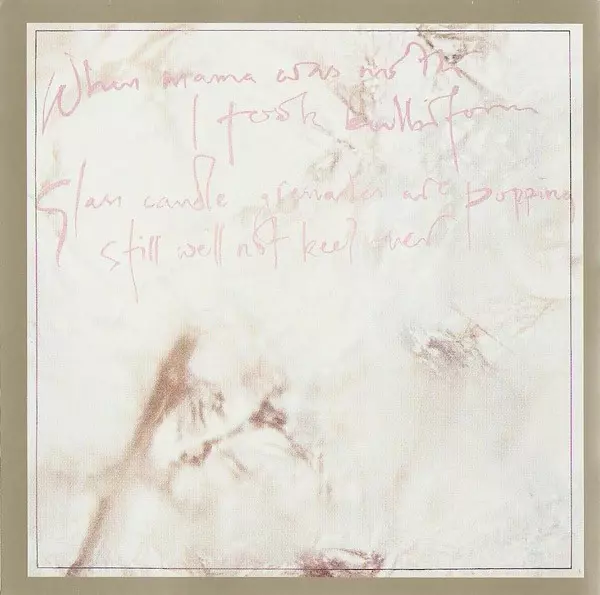 When mama was moth
I took bulbiform
Glass candle grenades are popping
still we'll not keel over